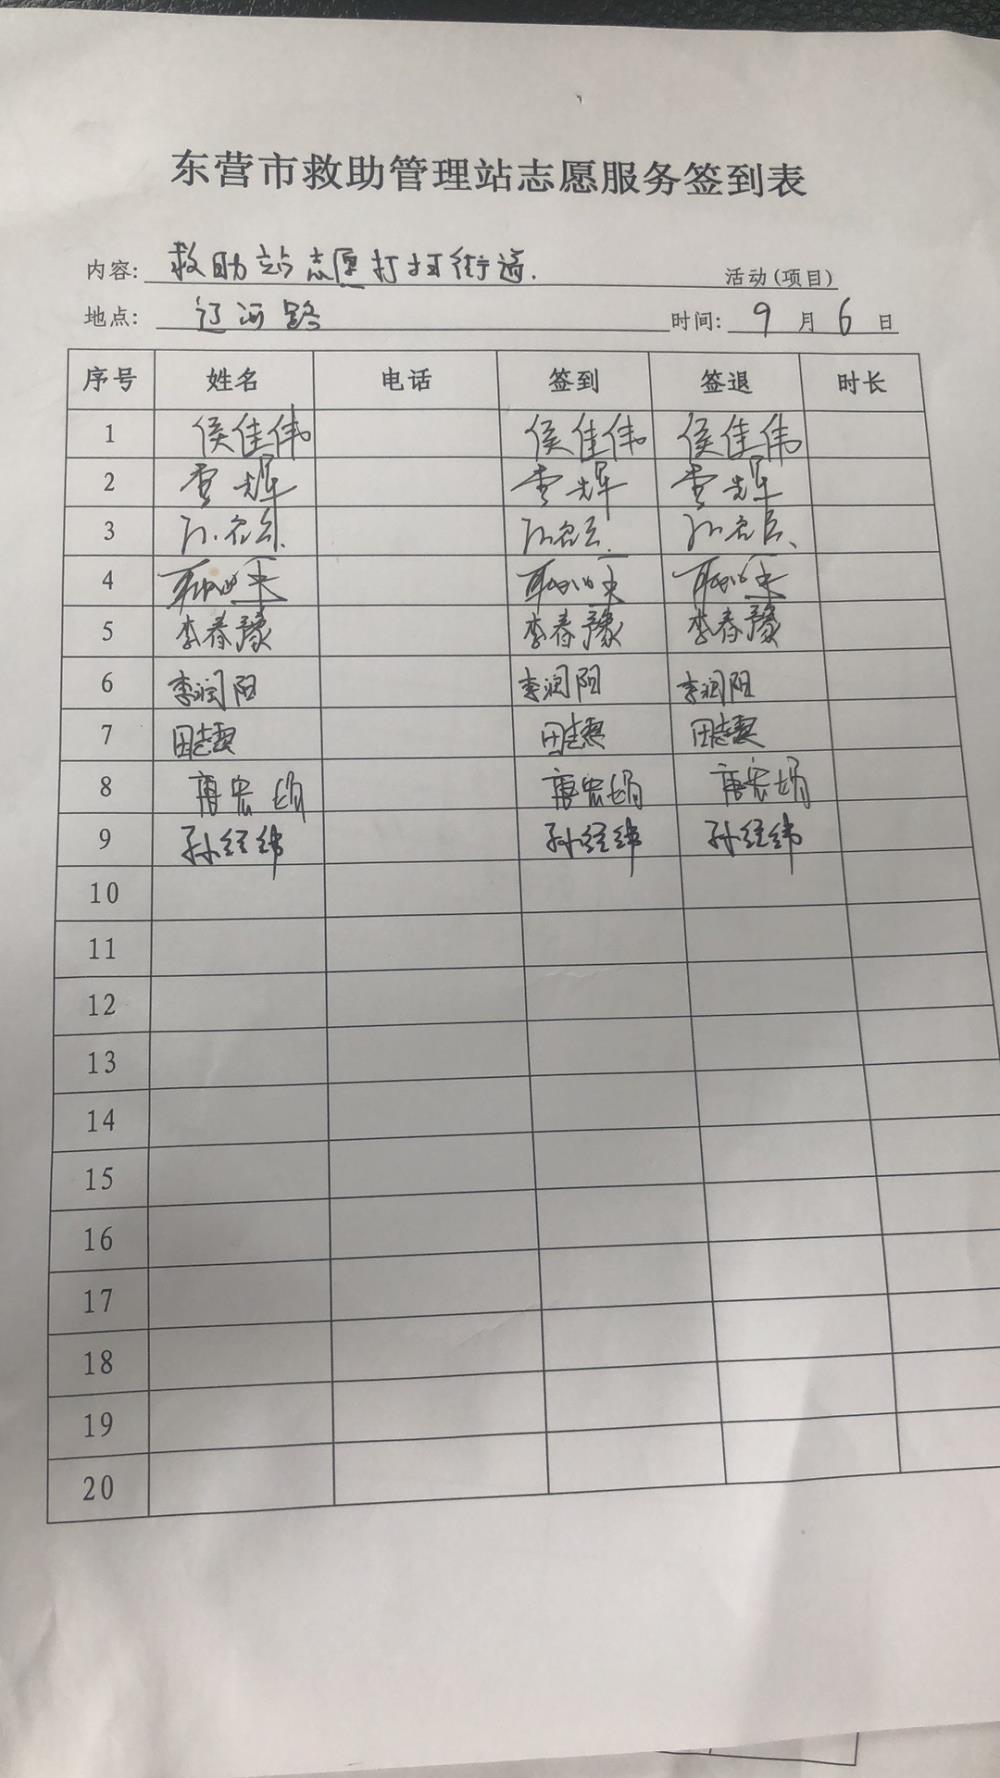 东营市救助管理站志愿服务签到表
内容: 救助站志愿打扫街道. 活动(项目)
地点: 辽河路 时间: 9月6日
序号 姓名 电话 签到 签退 时长
1 侯佳伟 侯佳伟 侯佳伟
2
3
4
5 李春豫 李春豫 李春豫
6 李润阳 李润阳 李润阳
7 田志慧 田志慧 田志慧
8 唐宏娟 唐宏娟 唐宏娟
9 孙经纬 孙经纬 孙经纬
10
11
12
13
14
15
16
17
18
19
20